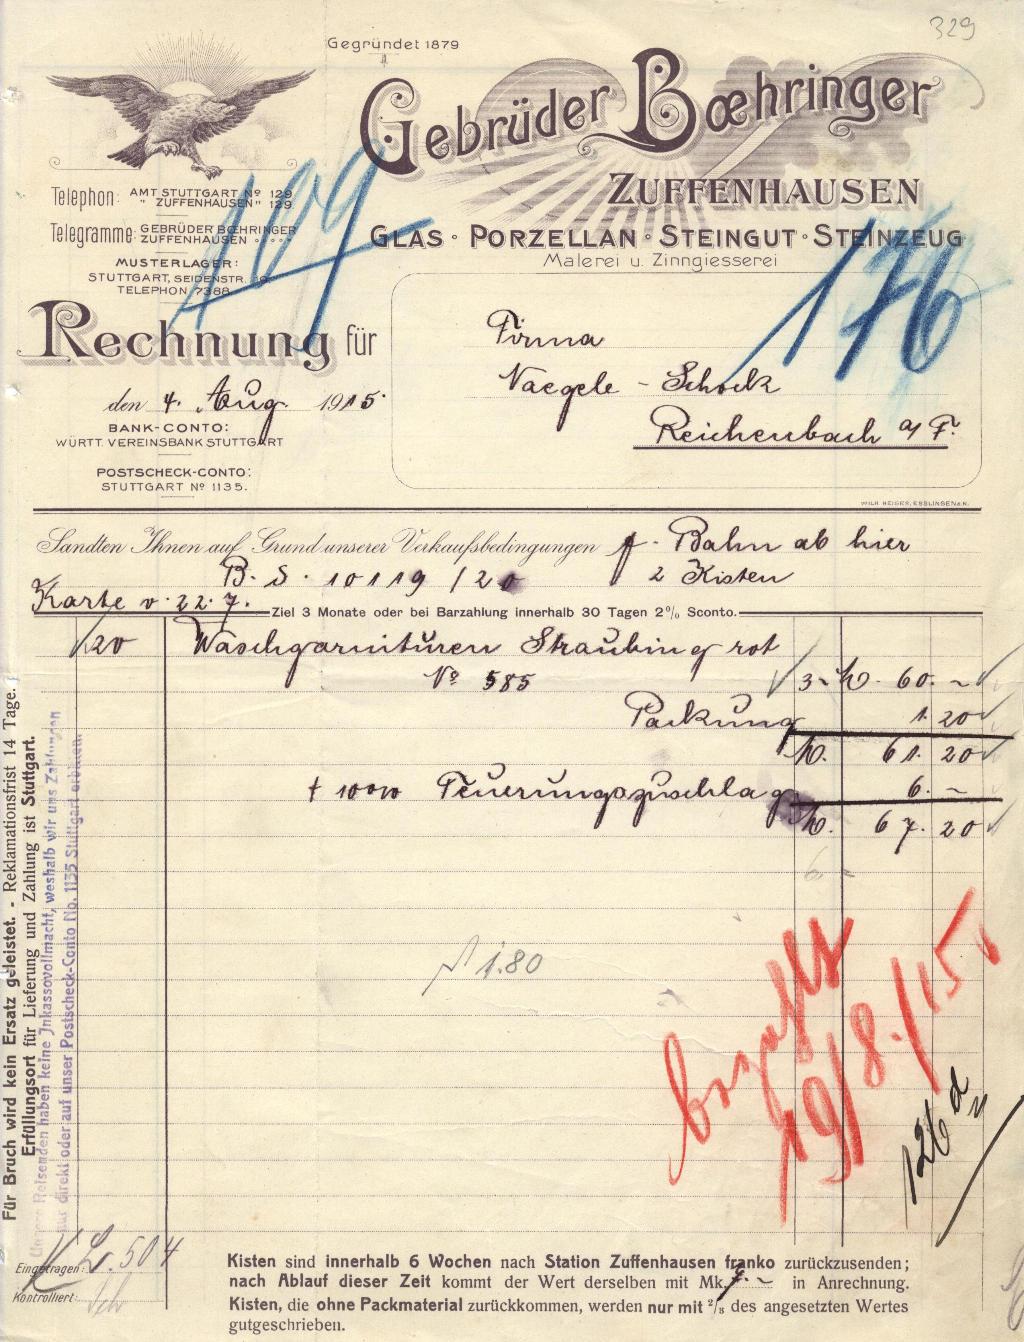 329
Gegründet 1879
Gebrüder Bœhringer
ZUFFENHAUSEN
GLAS · PORZELLAN · STEINGUT · STEINZEUG
Malerei u. Zinngiesserei
Telephon: AMT STUTTGART No 129
" ZUFFENHAUSEN" 129
Telegramme: GEBRÜDER BŒHRINGER
ZUFFENHAUSEN
MUSTERLAGER:
STUTTGART, SEIDENSTR.
TELEPHON 7388
109
176
Rechnung für
Firma
Naegele - Schock
Reichenbach a/F.
den 4. Aug. 1915.
BANK-CONTO:
WÜRTT. VEREINSBANK STUTTGART
POSTSCHECK-CONTO:
STUTTGART No 1135.
WILH. HEIGER, ESSLINGEN a.N.
Sandten Ihnen auf Grund unserer Verkaufsbedingungen p. Bahn ab hier
B. S. 10119/20 2 Kisten
Karte v. 22. 7.
Ziel 3 Monate oder bei Barzahlung innerhalb 30 Tagen 2% Sconto.
20 Waschgarnituren Straubing rot
No 585 3.- M. 60. -
Packung 1.20
M. 61.20
+ 10% Teuerungszuschlag 6. -
M. 67.20
6 -
1.80
bezahlt
19/8./15
126
Für Bruch wird kein Ersatz geleistet. - Reklamationsfrist 14 Tage.
Erfüllungsort für Lieferung und Zahlung ist Stuttgart.
Unsere Reisenden haben keine Inkassovollmacht, weshalb wir uns Zahlungen
nur direkt oder auf unser Postscheck-Conto No. 1135 Stuttgart erbitten.
Eingetragen: 504
Kontrolliert:
Kisten sind innerhalb 6 Wochen nach Station Zuffenhausen franko zurückzusenden;
nach Ablauf dieser Zeit kommt der Wert derselben mit Mk. 9. - in Anrechnung.
Kisten, die ohne Packmaterial zurückkommen, werden nur mit 2/3 des angesetzten Wertes
gutgeschrieben.